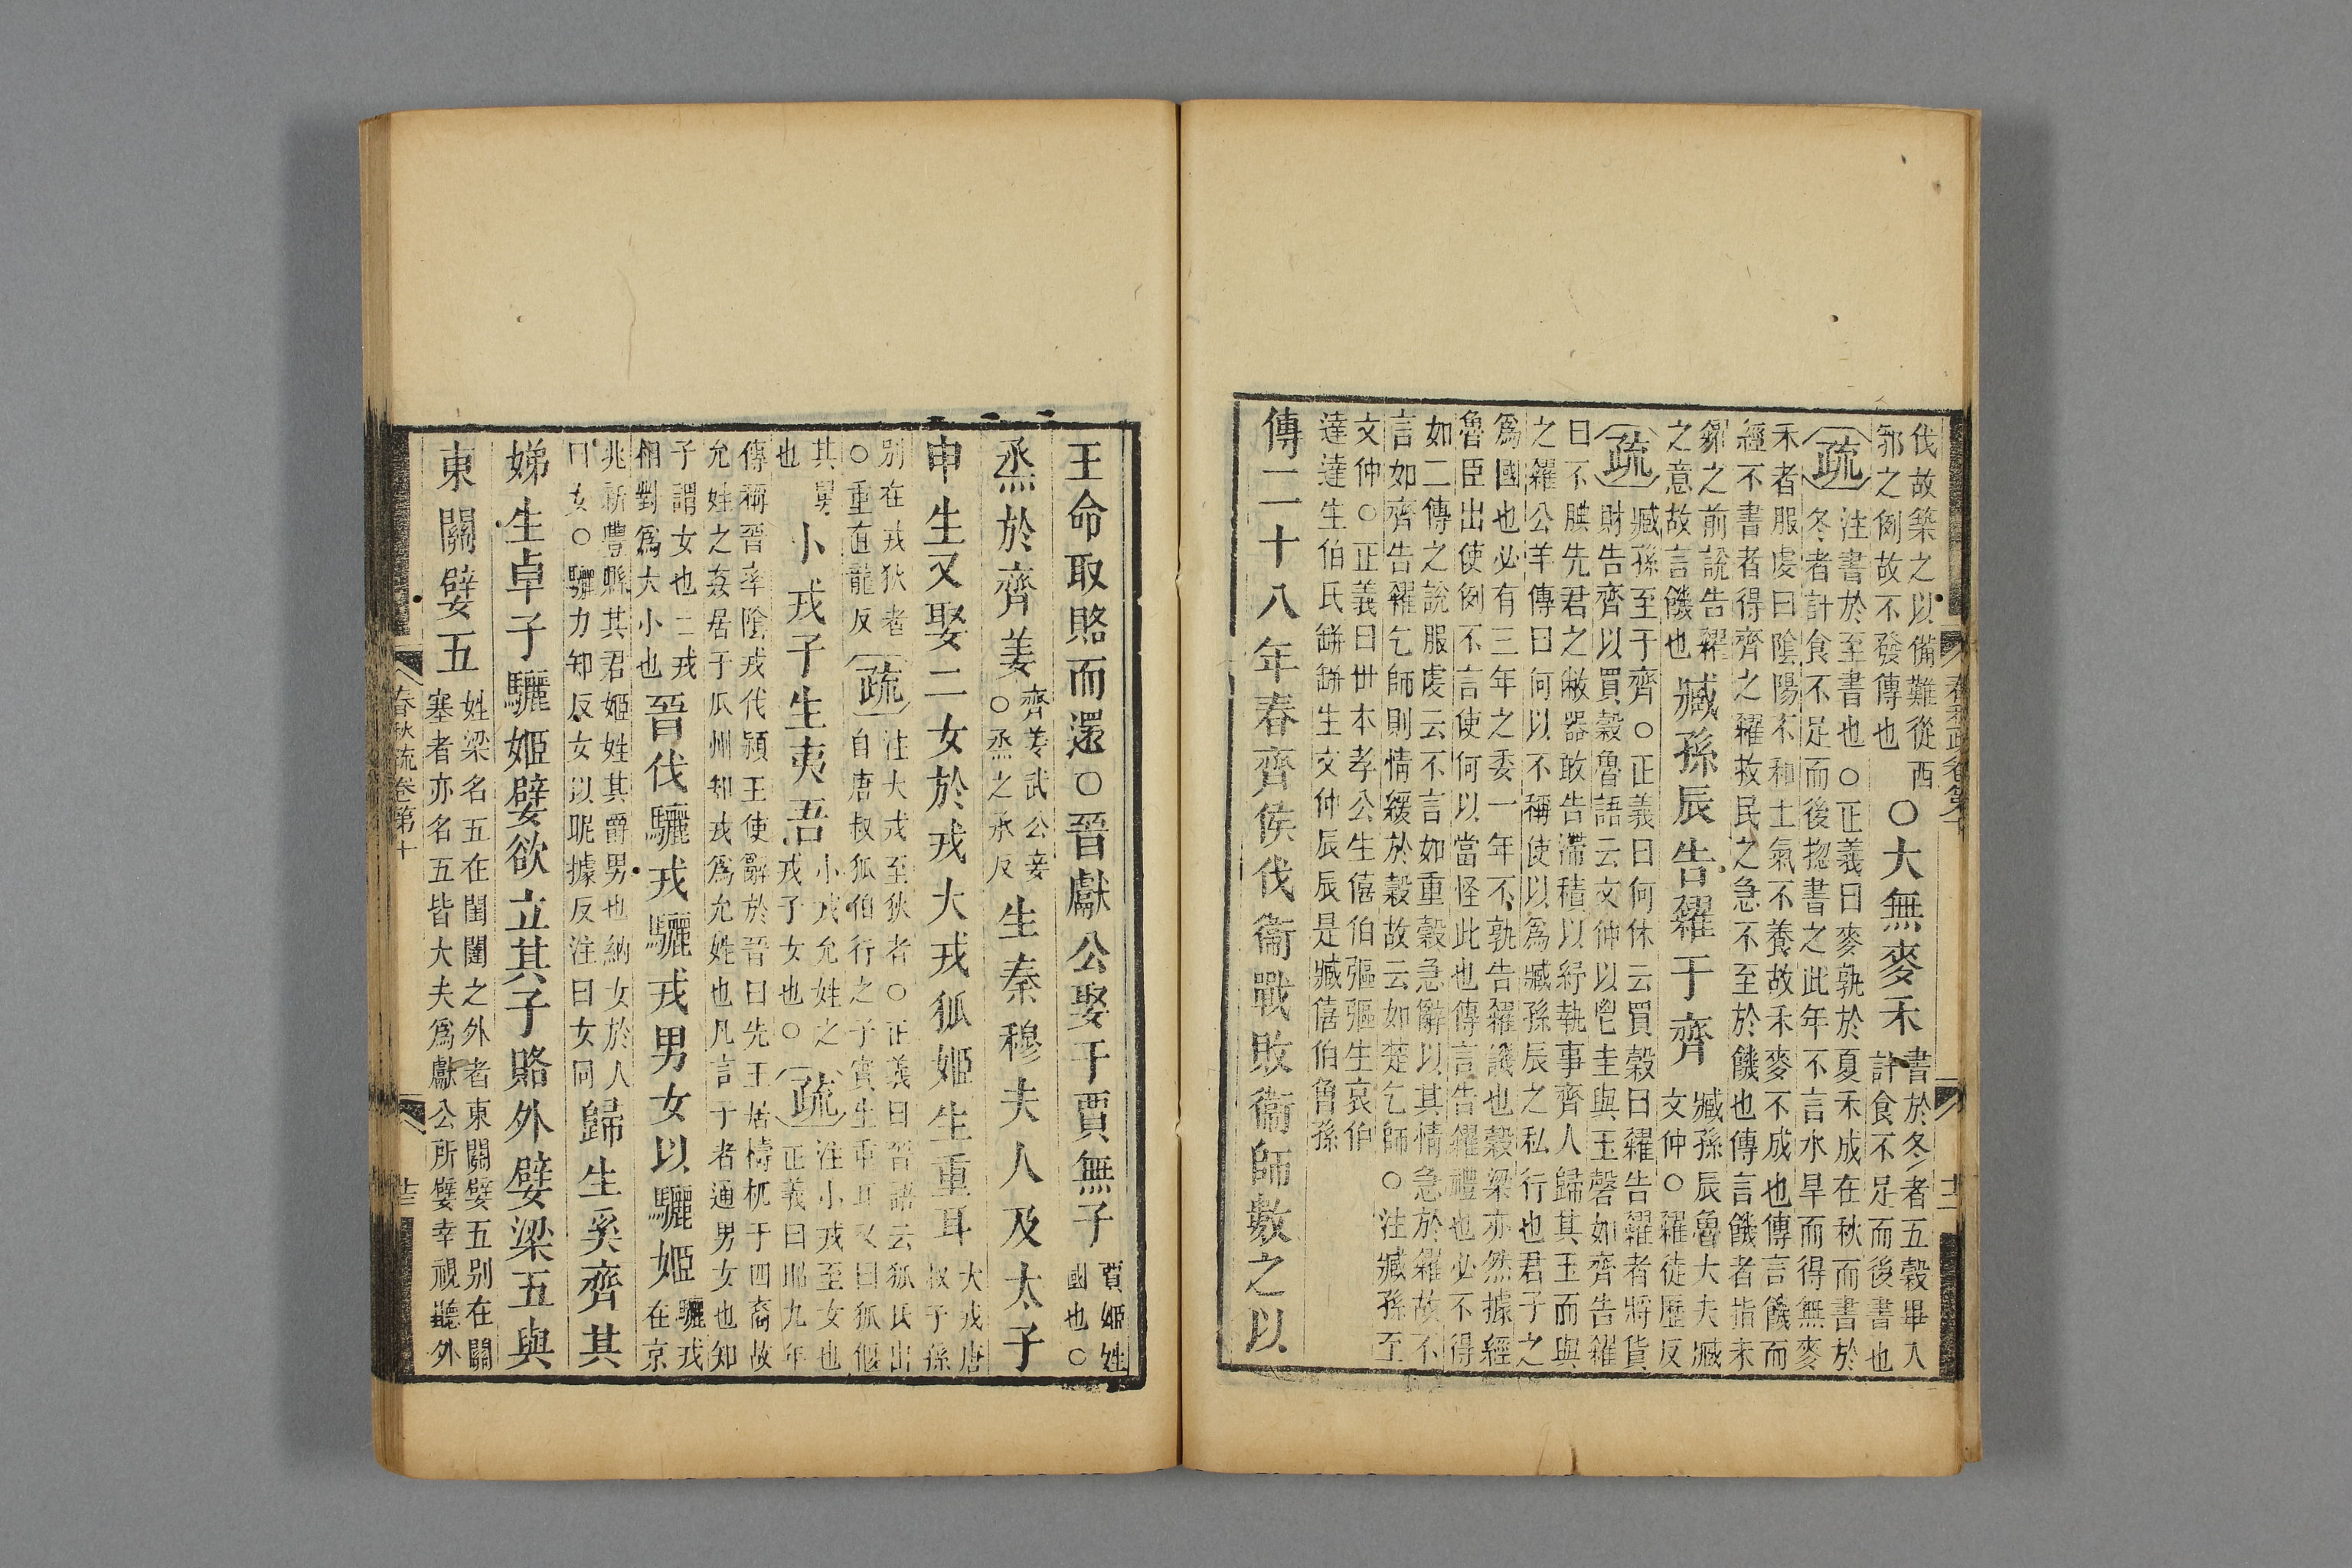 伐故築之以備難從西邾之例故不發傳也○大無麥禾書於冬者五穀畢入計食不足而後書也
疏注書於至書也○正義曰麥孰於夏禾成在秋而書於冬者計食不足而後揔書之此年不言水旱而得無麥
禾者服虔曰陰陽不和土氣不養故禾麥不成也傳言饑而經不書者得齊之糴救民之急不至於饑也傳言饑者指未
糴之前說告糴之意故言饑也臧孫辰告糴于齊臧孫辰魯大夫臧文仲○糴徒歷反
疏臧孫至于齊○正義曰何休云買穀曰糴告糴者將貨財告齊以買穀魯語云文仲以鬯圭與玉磬如齊告糴
曰不腆先君之敝器敢告滯積以紓執事齊人歸其玉而與之糴公羊傳曰何以不稱使以爲臧孫辰之私行也君子之
爲國也必有三年之委一年不孰告糴譏也穀梁亦然據經魯臣出使例不言使何以當怪此也傳言告糴禮也必不得
如二傳之說服虔云不言如重穀急辭以其情急於糴故不言如齊告糴乞師則情緩於穀故云如楚乞師○注臧孫至
文仲○正義曰世本孝公生僖伯彄彄生哀伯達達生伯氏缾缾生文仲辰辰是臧僖伯曾孫
傳二十八年春齊侯伐衞戰敗衞師數之以
王命取賂而還○晉獻公娶于賈無子賈姬姓國也○
烝於齊姜齊姜武公妾○烝之承反生秦穆夫人及太子
申生又娶二女於戎大戎狐姬生重耳大戎唐叔子孫
別在戎狄者○重直龍反疏注大戎至狄者○正義曰晉語云狐氏出自唐叔狐伯行之子實生重耳又曰狐偃
其舅也小戎子生夷吾小戎允姓之戎子女也○疏注小戎至女也正義曰昭九年
傳稱晉率陰戎伐潁王使辭於晉曰先王居檮杌于四裔故允姓之姦居于瓜州知戎爲允姓也凡言子者通男女也知
子謂女也二戎相對爲大小也晉伐驪戎驪戎男女以驪姬驪戎在京
兆新豐縣其君姬姓其爵男也納女於人曰女○驪力知反女以昵據反注曰女同歸生奚齊其
娣生卓子驪姬嬖欲立其子賂外嬖梁五與
東關嬖五姓梁名五在閨闥之外者東關嬖五別在關塞者亦名五皆大夫爲獻公所嬖幸視聽外
春秋疏卷第十